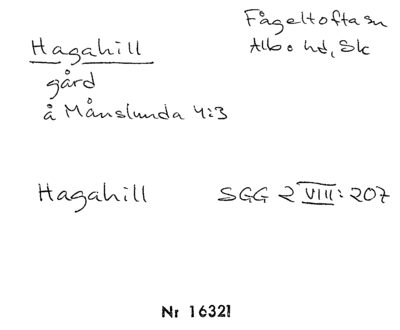 Hagahill
Fågeltofta sn
Albo hd, Sk
gård
å Månslunda 4:3
Hagahill SGG 2 VIII: 207
Nr 16321